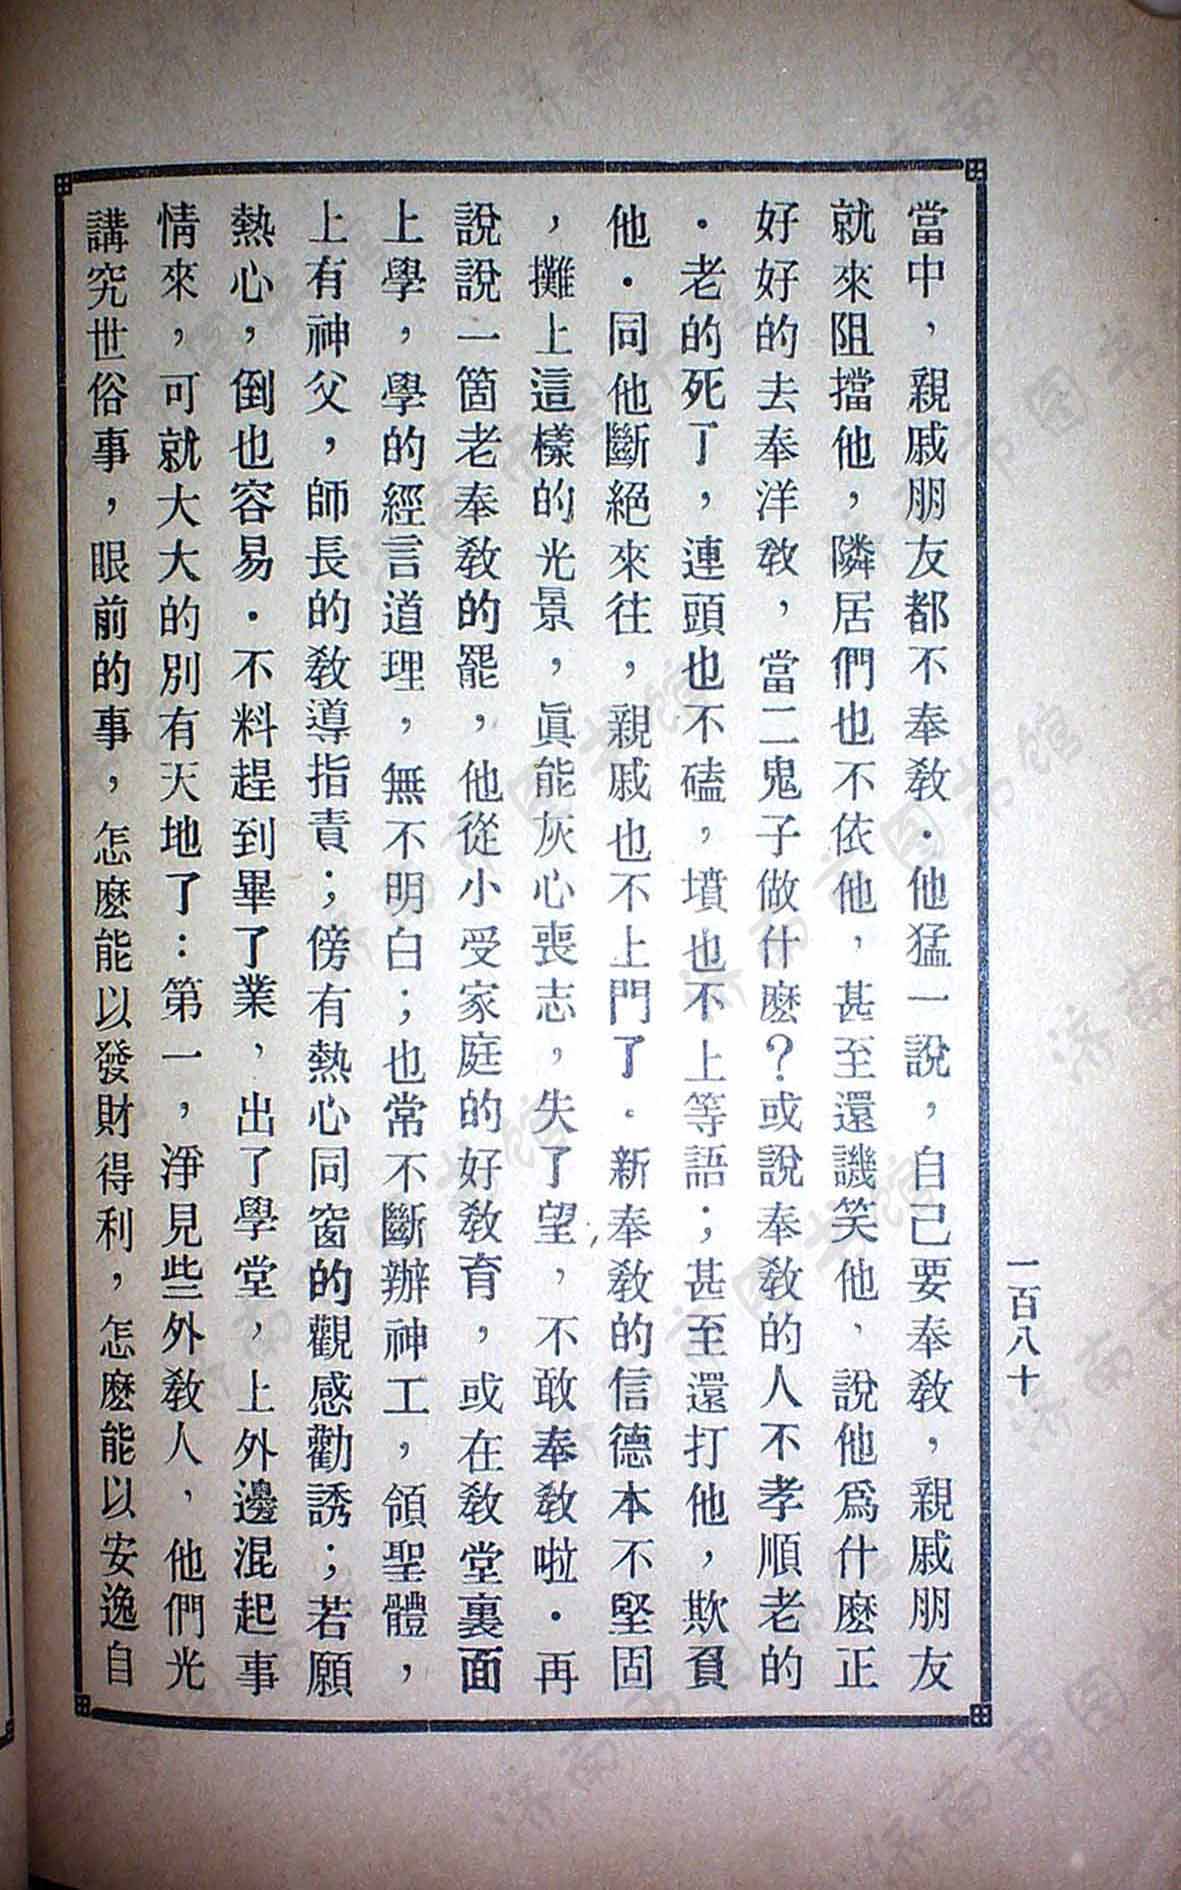 當中，親戚朋友都不奉敎．他猛一說，自己要奉敎，親戚朋友
就來阻擋他，隣居們也不依他，甚至還譏笑他，說他爲什麽正
好好的去奉洋敎，當二鬼子做什麽？或說奉敎的人不孝順老的
．老的死了，連頭也不磕，墳也不上等語；甚至還打他，欺負
他．同他斷絕來往，親戚也不上門了．新奉敎的信德本不堅固
，攤上這樣的光景，眞能灰心喪志，失了望，不敢奉敎啦．再
說說一箇老奉敎的罷，他從小受家庭的好敎育，或在敎堂裏面
上學，學的經言道理，無不明白；也常不斷辦神工，領聖體，
上有神父，師長的敎導指責；傍有熱心同窗的觀感勸誘；若願
熱心，倒也容易．不料趕到畢了業，出了學堂，上外邊混起事
情來，可就大大的別有天地了：第一，淨見些外敎人，他們光
講究世俗事，眼前的事，怎麽能以發財得利，怎麽能以安逸自
一百八十
济南市图书馆